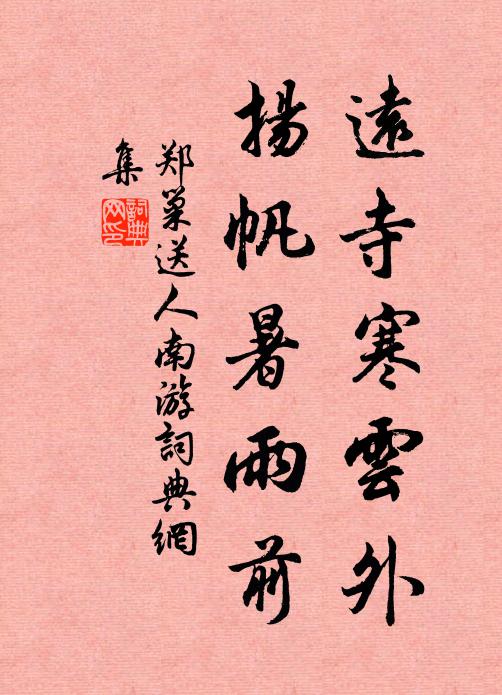 遠寺寒雲外
揚帆暑雨前
郑巢送人南游詞典網
集
詞典
网印